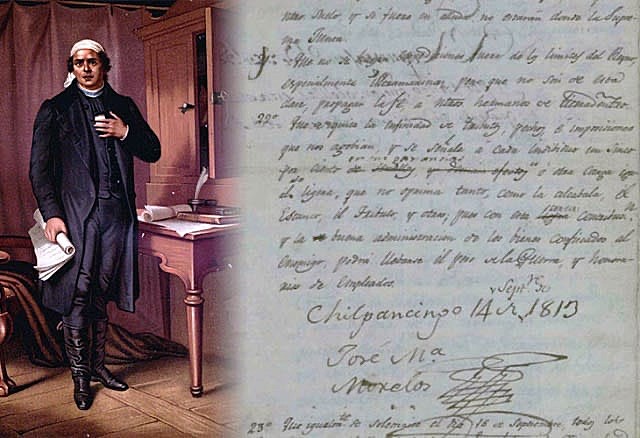 ntro Suelo, y si fuera en alma no estarán donde la Supre-
ma Junta.
21º Que no se hagan expediciones fuera de los limites del Reyno,
especialmente Ultramarinas, pero que
propagar la fé a ntros hermanos de Tierradentro.
22º Que se quite la infinidad de tributos, pechos é imposiciones
que nos agobian, y se señale a cada individuo un cinco
por ciento de semillas y demas efectos ú otra carga igual
ligera, que no oprima tanto, como la alcabala, el
Estanco, el Tributo, y otros, pues con esta ligera Contribucion,
y la buena administracion de los bienes confiscados al
Enemigo, podrá llebarse el peso de la Guerra, y honora-
rios de Empleados.
Chilpancingo 14 de Septre de 1813
José Ma
Morelos
23º Que igualmte se solemnice el dia 16 de Septiembre, todos los